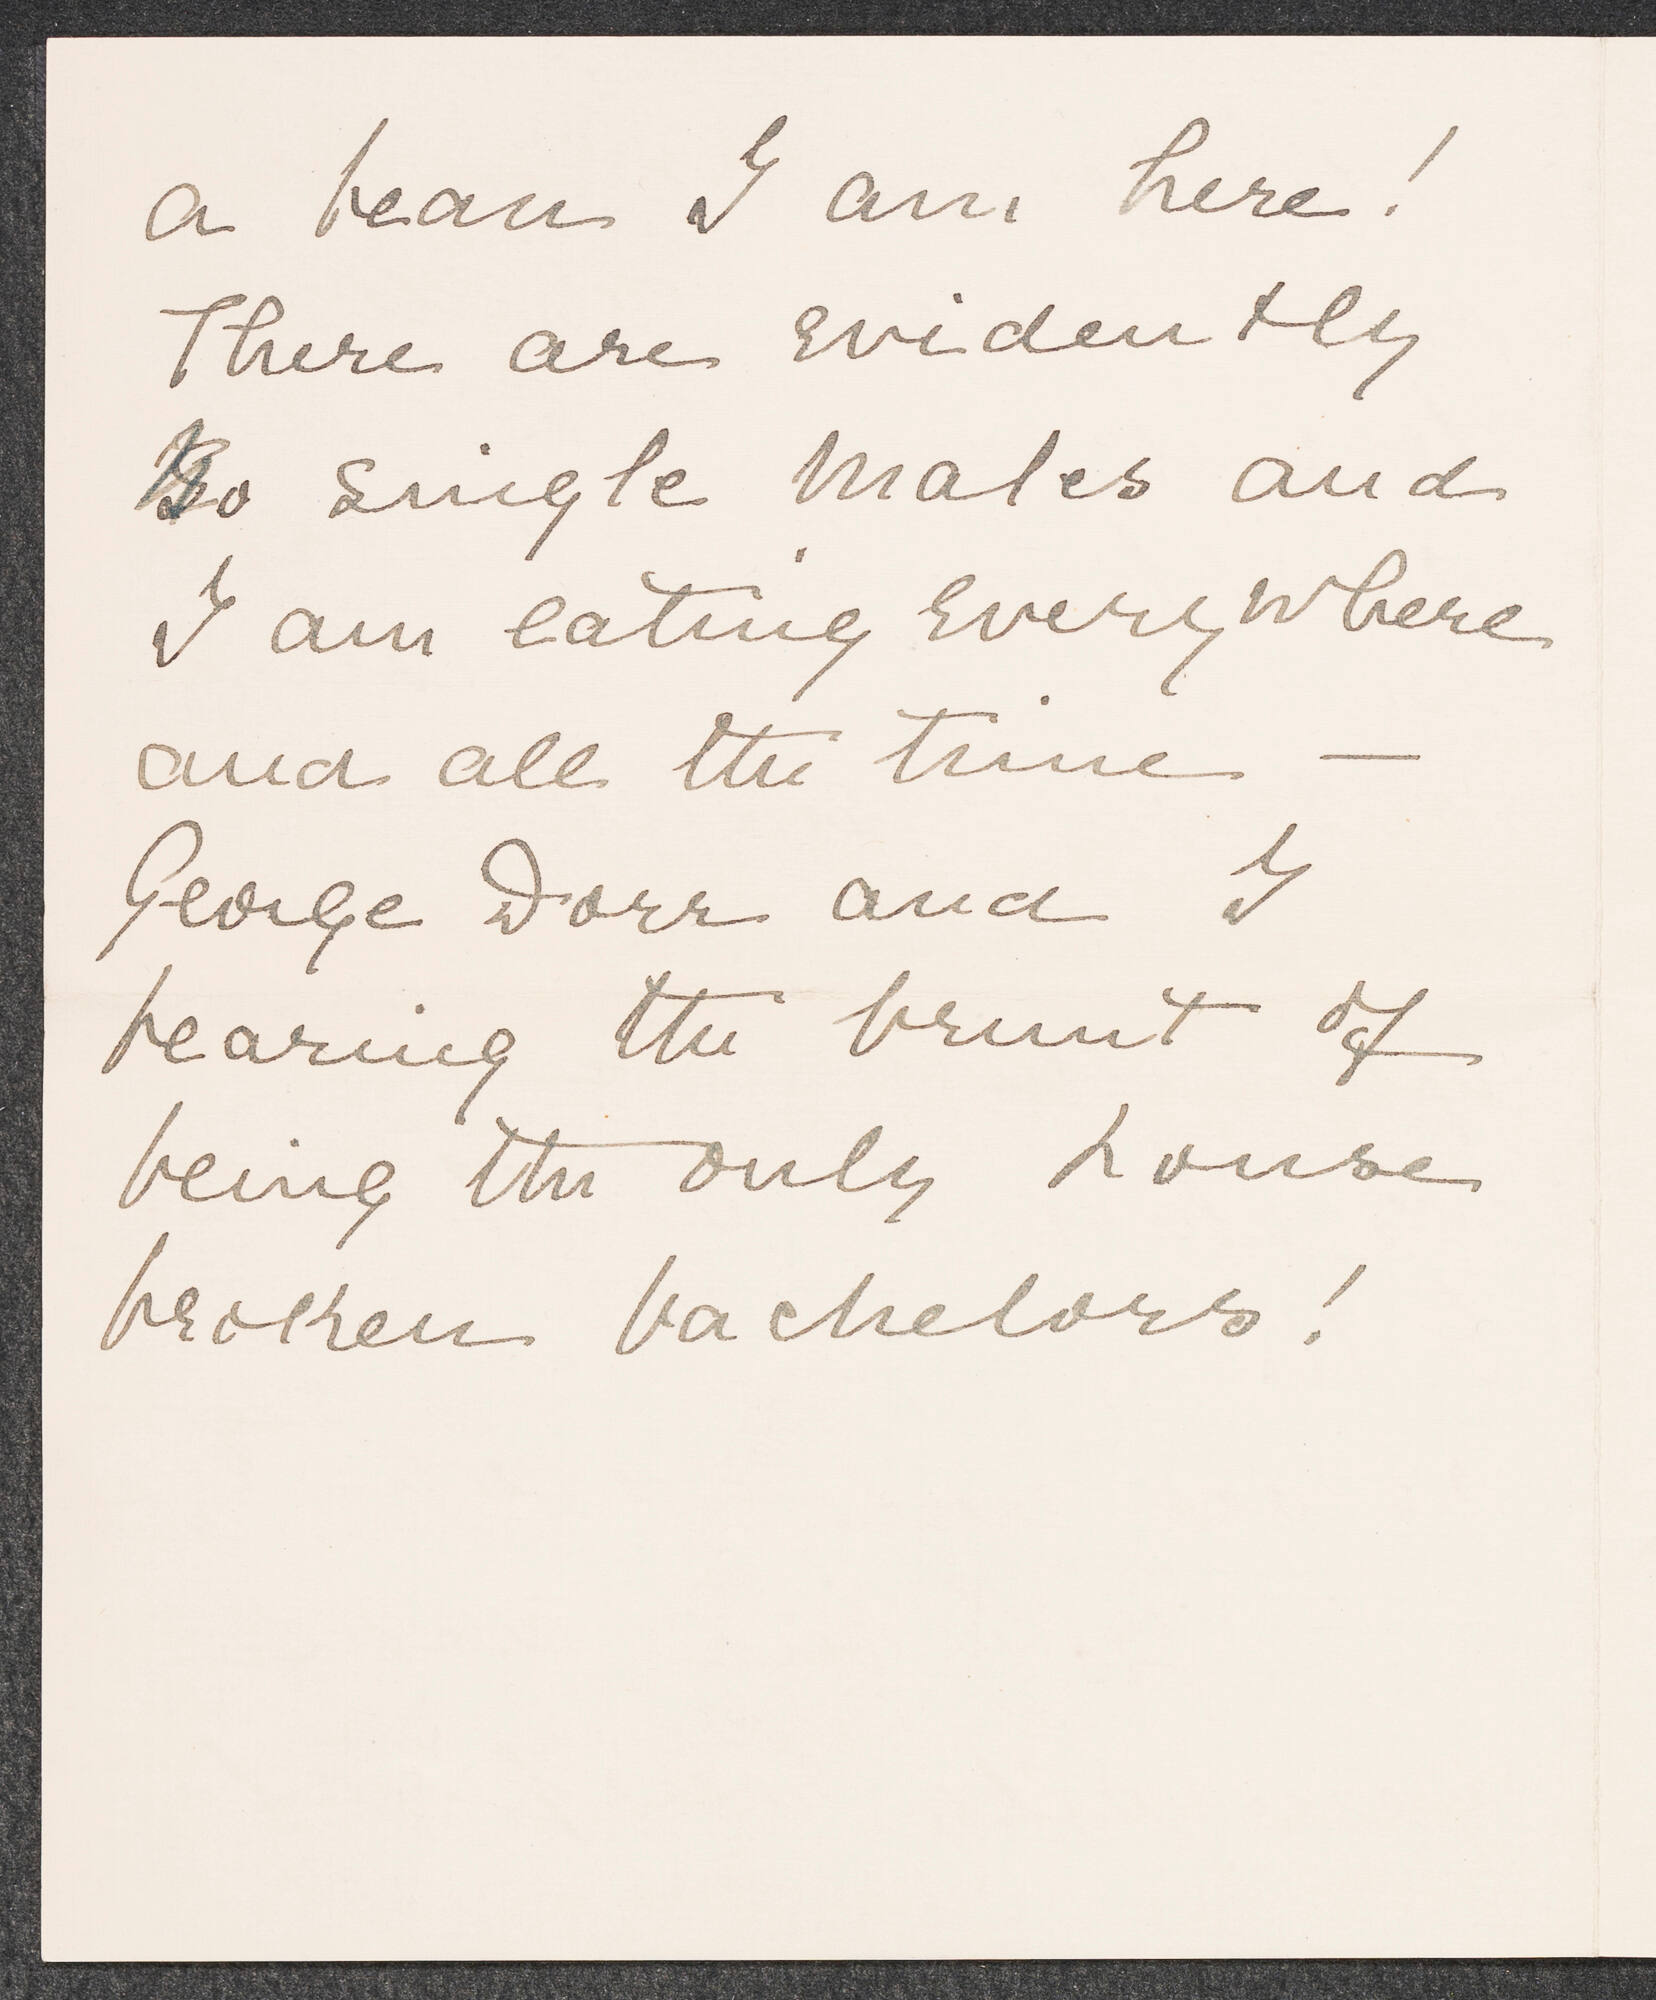 a beau I am here!
There are evidently
no single males and
I am eating everywhere
and all the time —
George Dorr and I
bearing the brunt of
being the only house
broken bachelors!